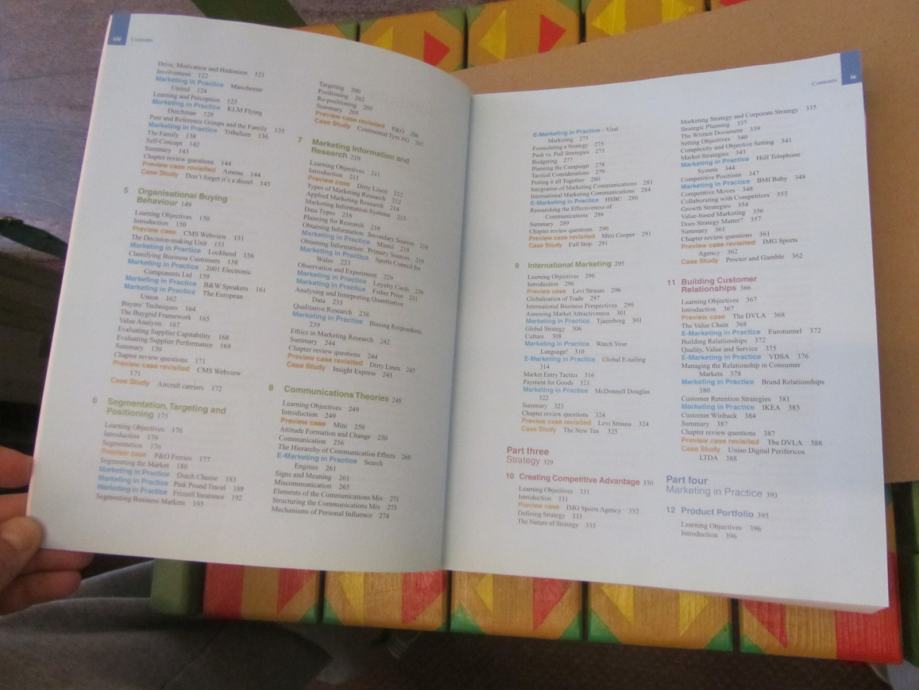 viii Contents
Drive, Motivation and Hedonism 121
Involvement 122
Marketing in Practice Manchester
United 124
Learning and Perception 125
Marketing in Practice KLM Flying
Dutchman 128
Peer and Reference Groups and the Family 133
Marketing in Practice Tribthatte 136
The Family 138
Self-Concept 142
Summary 143
Chapter review questions 144
Preview case revisited Amena 144
Case Study Don't forget it's a diesel 145
5 Organisational Buying
Behaviour 149
Learning Objectives 150
Introduction 150
Preview case CMS Webview 151
The Decision-making Unit 153
Marketing in Practice Lockheed 156
Classifying Business Customers 158
Marketing in Practice 2001 Electronic
Components Ltd 159
Marketing in Practice B&W Speakers 161
Marketing in Practice The European
Union 162
Buyers' Techniques 164
The Buygrid Framework 165
Value Analysis 167
Evaluating Supplier Capability 168
Evaluating Supplier Performance 169
Summary 170
Chapter review questions 171
Preview case revisited CMS Webview
171
Case Study Aircraft carriers 172
6 Segmentation, Targeting and
Positioning 175
Learning Objectives 176
Introduction 176
Segmentation 176
Preview case P&O Ferries 177
Segmenting the Market 180
Marketing in Practice Dutch Cheese 183
Marketing in Practice Pink Pound Travel 189
Marketing in Practice Frizzell Insurance 192
Segmenting Business Markets 193
Targeting 200
Positioning 202
Re-positioning 205
Summary 205
Preview case revisited P&O 206
Case Study Continental Tyre AG
7 Marketing Information and
Research 210
Learning Objectives 211
Introduction 211
Preview case Dirty Linen 212
Types of Marketing Research 212
Applied Marketing Research 214
Marketing Information Systems 215
Data Types 216
Planning the Research 218
Obtaining Information: Secondary Sources 218
Marketing in Practice Mintel 218
Obtaining Information: Primary Sources 219
Marketing in Practice Sports Council for
Wales 223
Observation and Experiment 226
Marketing in Practice Loyalty Cards 226
Marketing in Practice Fisher Price 231
Analysing and Interpreting Quantitative
Data 233
Qualitative Research 236
Marketing in Practice Biasing Respondents
239
Ethics in Marketing Research 242
Summary 244
Chapter review questions 244
Preview case revisited Dirty Linen 245
Case Study Insight Express 245
8 Communications Theories 248
Learning Objectives 249
Introduction 249
Preview case Mini 250
Attitude Formation and Change 250
Communication 256
The Hierarchy of Communication Effects 260
E-Marketing in Practice Search
Engines 261
Signs and Meaning 261
Miscommunication 265
Elements of the Communications Mix 271
Structuring the Communications Mix 273
Mechanisms of Personal Influence 274
Contents ix
E-Marketing in Practice Viral
Marketing 275
Formulating a Strategy 275
Push vs. Pull Strategies 275
Budgeting 277
Planning the Campaign 278
Tactical Considerations 279
Putting it all Together 280
Integration of Marketing Communications 281
International Marketing Communications 284
E-Marketing in Practice HSBC 286
Researching the Effectiveness of
Communications 286
Summary 289
Chapter review questions 290
Preview case revisited Mini Cooper 291
Case Study Full Stop 291
9 International Marketing 295
Learning Objectives 296
Introduction 296
Preview case Levi Strauss 296
Globalisation of Trade 297
International Business Perspectives 299
Assessing Market Attractiveness 301
Marketing in Practice Tjaereborg 301
Global Strategy 306
Culture 308
Marketing in Practice Watch Your
Language! 310
E-Marketing in Practice Global E-tailing
314
Market Entry Tactics 316
Payment for Goods 321
Marketing in Practice McDonnell Douglas
322
Summary 323
Chapter review questions 324
Preview case revisited Levi Strauss 324
Case Study The New Ten 325
Part three
Strategy 329
10 Creating Competitive Advantage 330
Learning Objectives 331
Introduction 331
Preview case IMG Sports Agency 332
Defining Strategy 333
The Nature of Strategy 333
Marketing Strategy and Corporate Strategy 335
Strategic Planning 337
The Written Document 339
Setting Objectives 340
Complexity and Objective Setting 341
Market Strategies 343
Marketing in Practice Hull Telephone
System 344
Competitive Positions 347
Marketing in Practice BMI Baby 348
Competitive Moves 348
Collaborating with Competitors 353
Growth Strategies 354
Value-based Marketing 356
Does Strategy Matter? 357
Summary 361
Chapter review questions 361
Preview case revisited IMG Sports
Agency 362
Case Study Procter and Gamble 362
11 Building Customer
Relationships 366
Learning Objectives 367
Introduction 367
Preview case The DVLA 368
The Value Chain 368
E-Marketing in Practice Eurotunnel 372
Building Relationships 372
Quality, Value and Service 375
E-Marketing in Practice VDSA 376
Managing the Relationship in Consumer
Markets 378
Marketing in Practice Brand Relationships
380
Customer Retention Strategies 381
Marketing in Practice IKEA 383
Customer Winback 384
Summary 387
Chapter review questions 387
Preview case revisited The DVLA 388
Case Study Uniao Digital Perifericos
LTDA 388
Part four
Marketing in Practice 393
12 Product Portfolio 395
Learning Objectives 396
Introduction 396